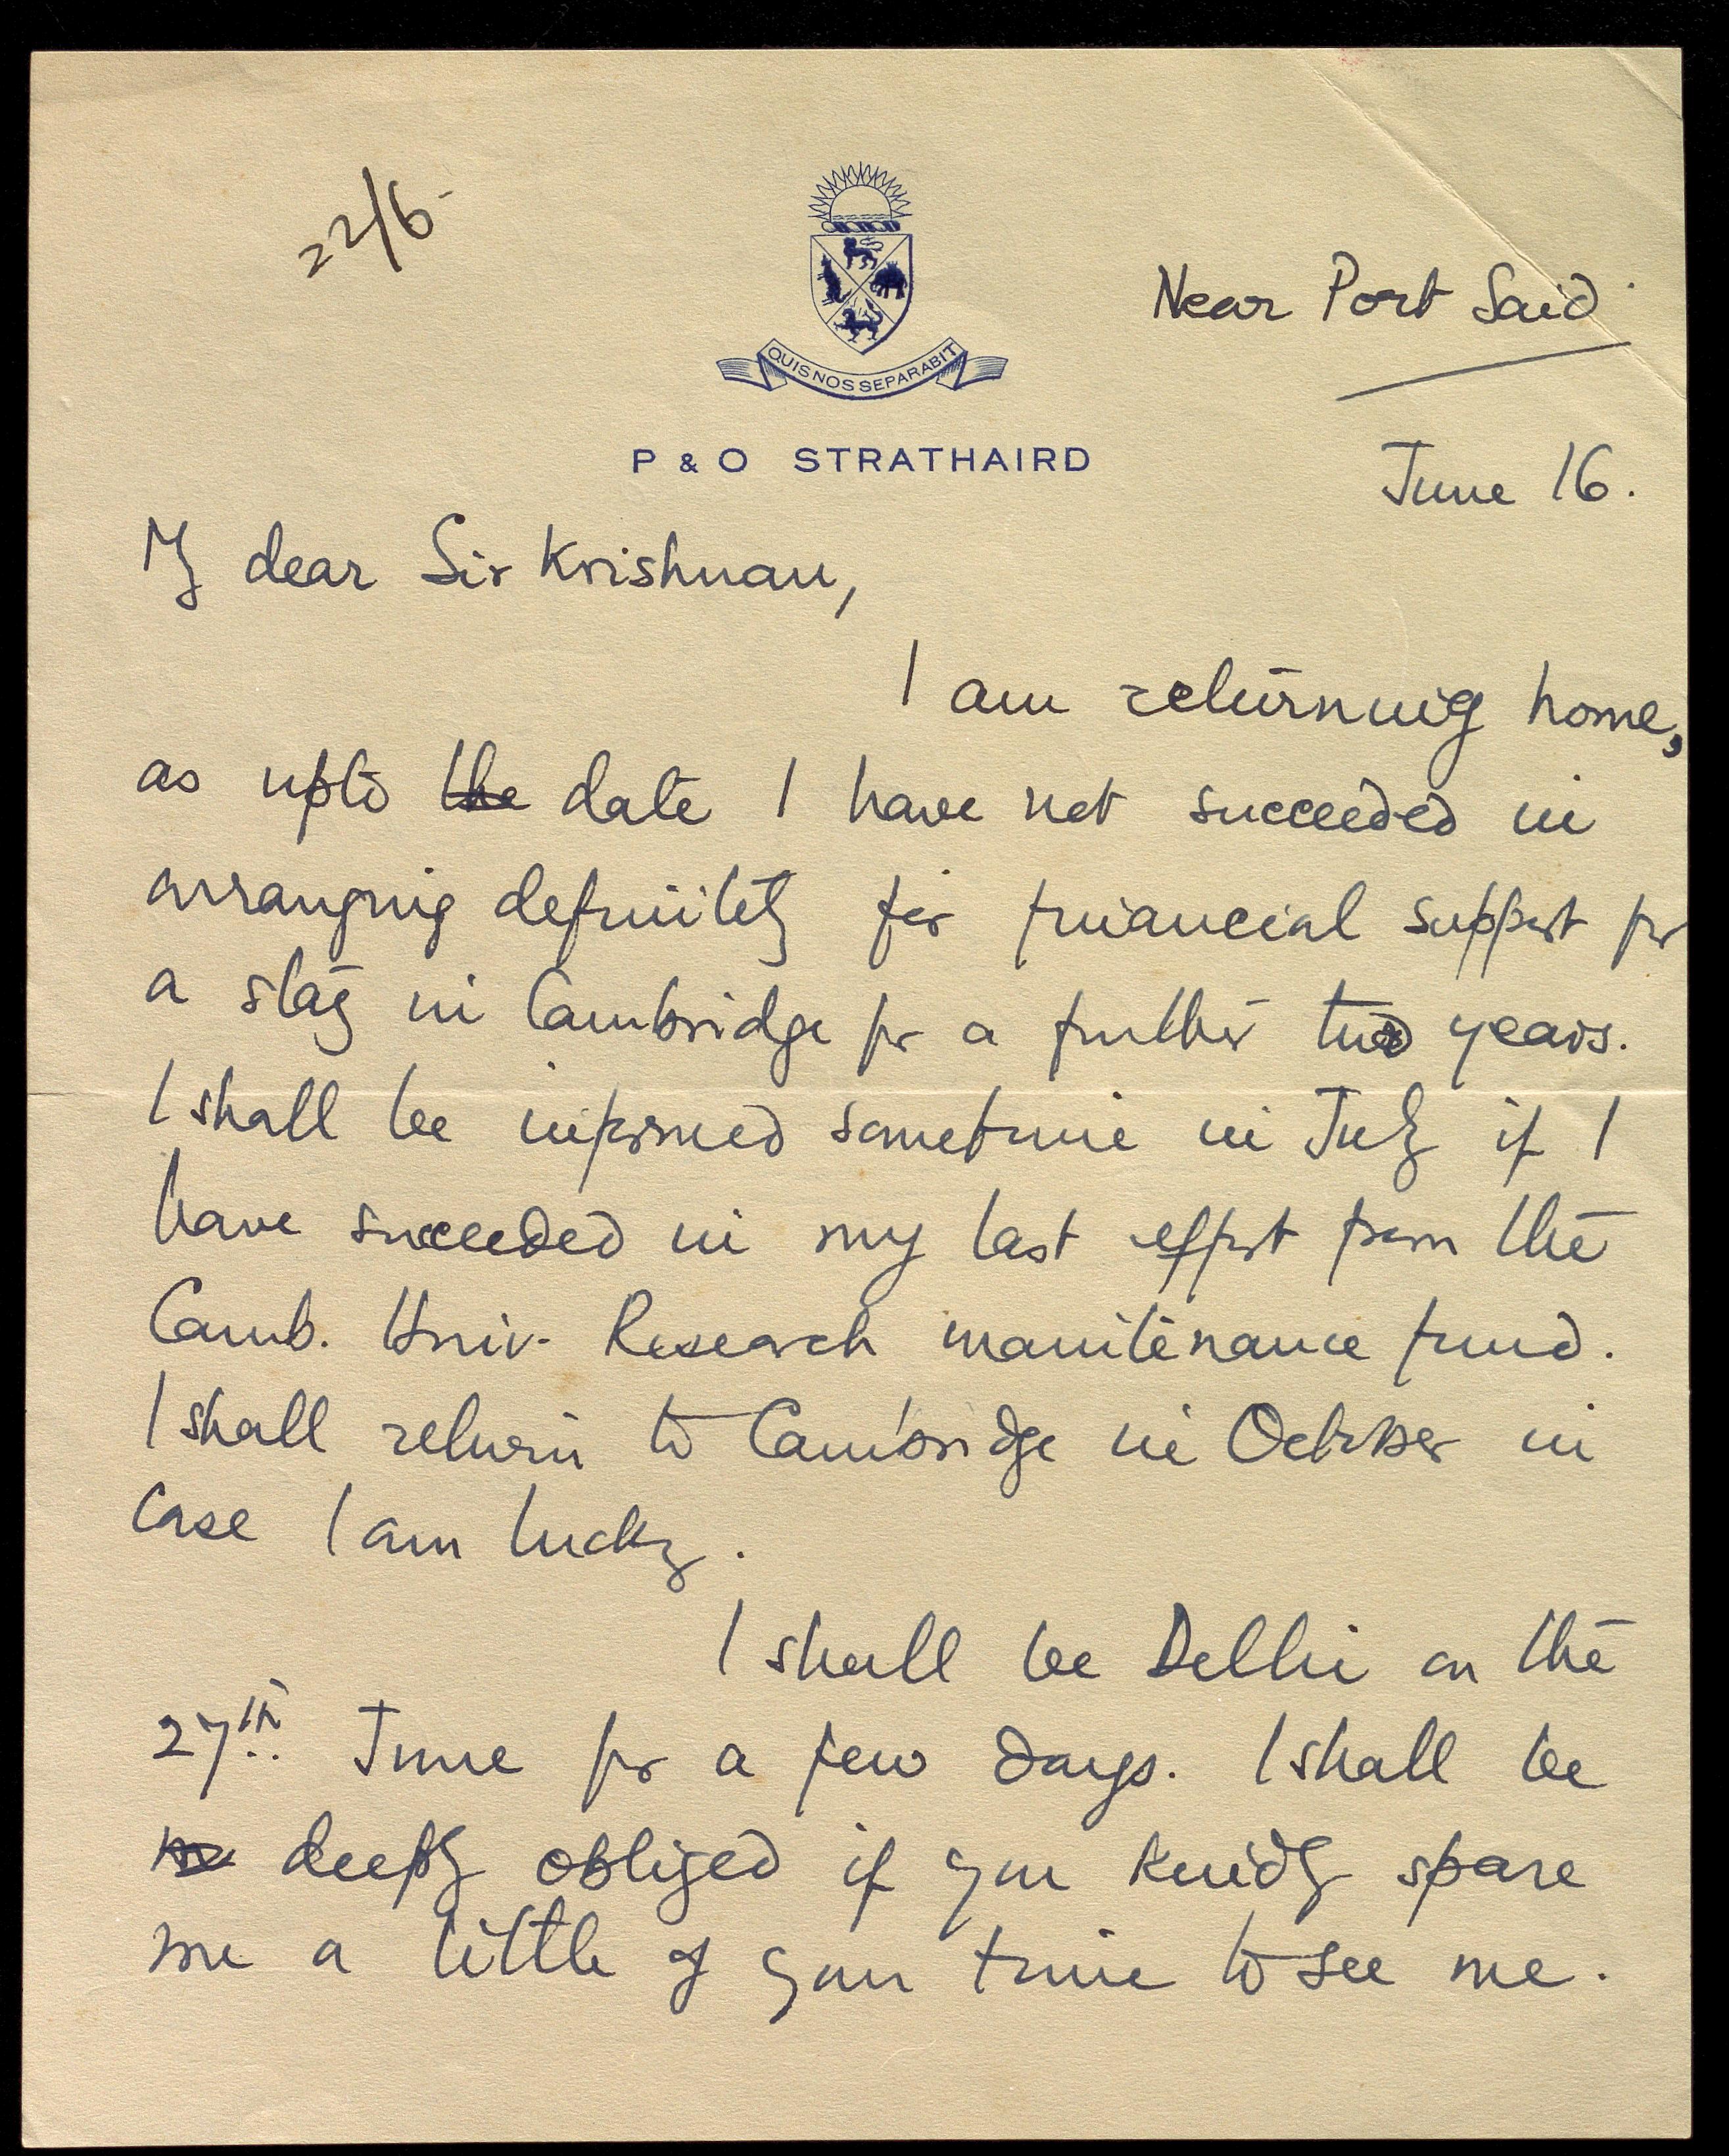 22/6
Near Port Said
QUIS NOS SEPARABIT
P & O STRATHAIRD
June 16.
My dear Sir Krishnan,
I am returning home,
as upto the date I have not succeeded in
arranging definitely for financial support for
a stay in Cambridge for a further two years.
I shall be informed sometime in July if I
have succeeded in my last effort from the
Camb. Univ. Research maintenance fund.
I shall return to Cambridge in October in
case I am lucky.
I shall be Delhi on the
27th June for a few days. I shall be
deeply obliged if you kindly spare
me a little of your time to see me.